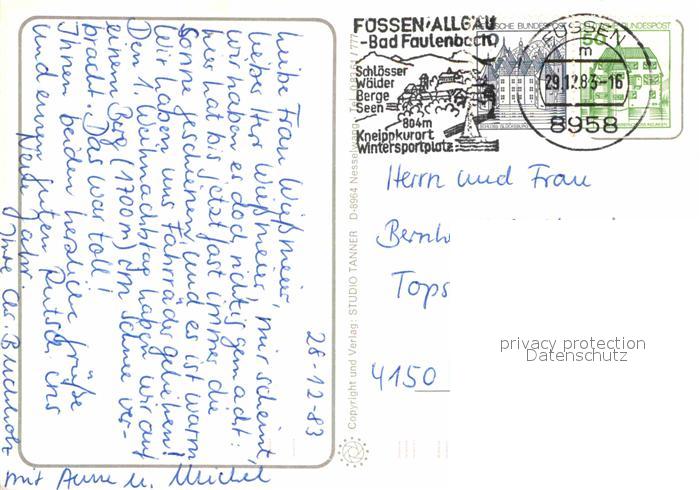 28-12-83
Liebe Frau Weißmeier,
lieber Herr Weißmeier, mir scheint,
wir haben es doch richtig gemacht:
hier hat bis jetzt fast immer die
Sonne geschienen, und es ist warm
Wir haben uns Fahrräder geliehen!
Den 1. Weihnachtstag haben wir auf
einem Berg (1700m) im Schnee ver-
bracht. Das war toll!
Ihnen beiden herzliche Grüße
und einen guten Rutsch ins
Neue Jahr.
Ihre Chr. Buchholz
mit Anne u. Michel
Copyright und Verlag: STUDIO TANNER D-8964 Nesselwang
FÜSSEN/ALLGÄU
-Bad Faulenbach
Schlösser
Wälder
Berge
Seen
804m
Kneippkurort
Wintersportplatz
DEUTSCHE BUNDESPOST
SCHLOSS GLÜCKSBURG
DEUTSCHE BUNDESPOST
50
FÜSSEN
m
29.12.83-16
8958
Herrn und Frau
Bernh
Tops
4150
privacy protection
Datenschutz